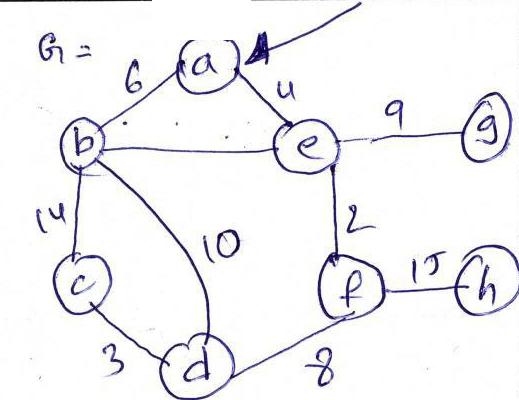 G =
a
6
4
b
e
9
g
14
10
2
c
f
15
h
3
d
8